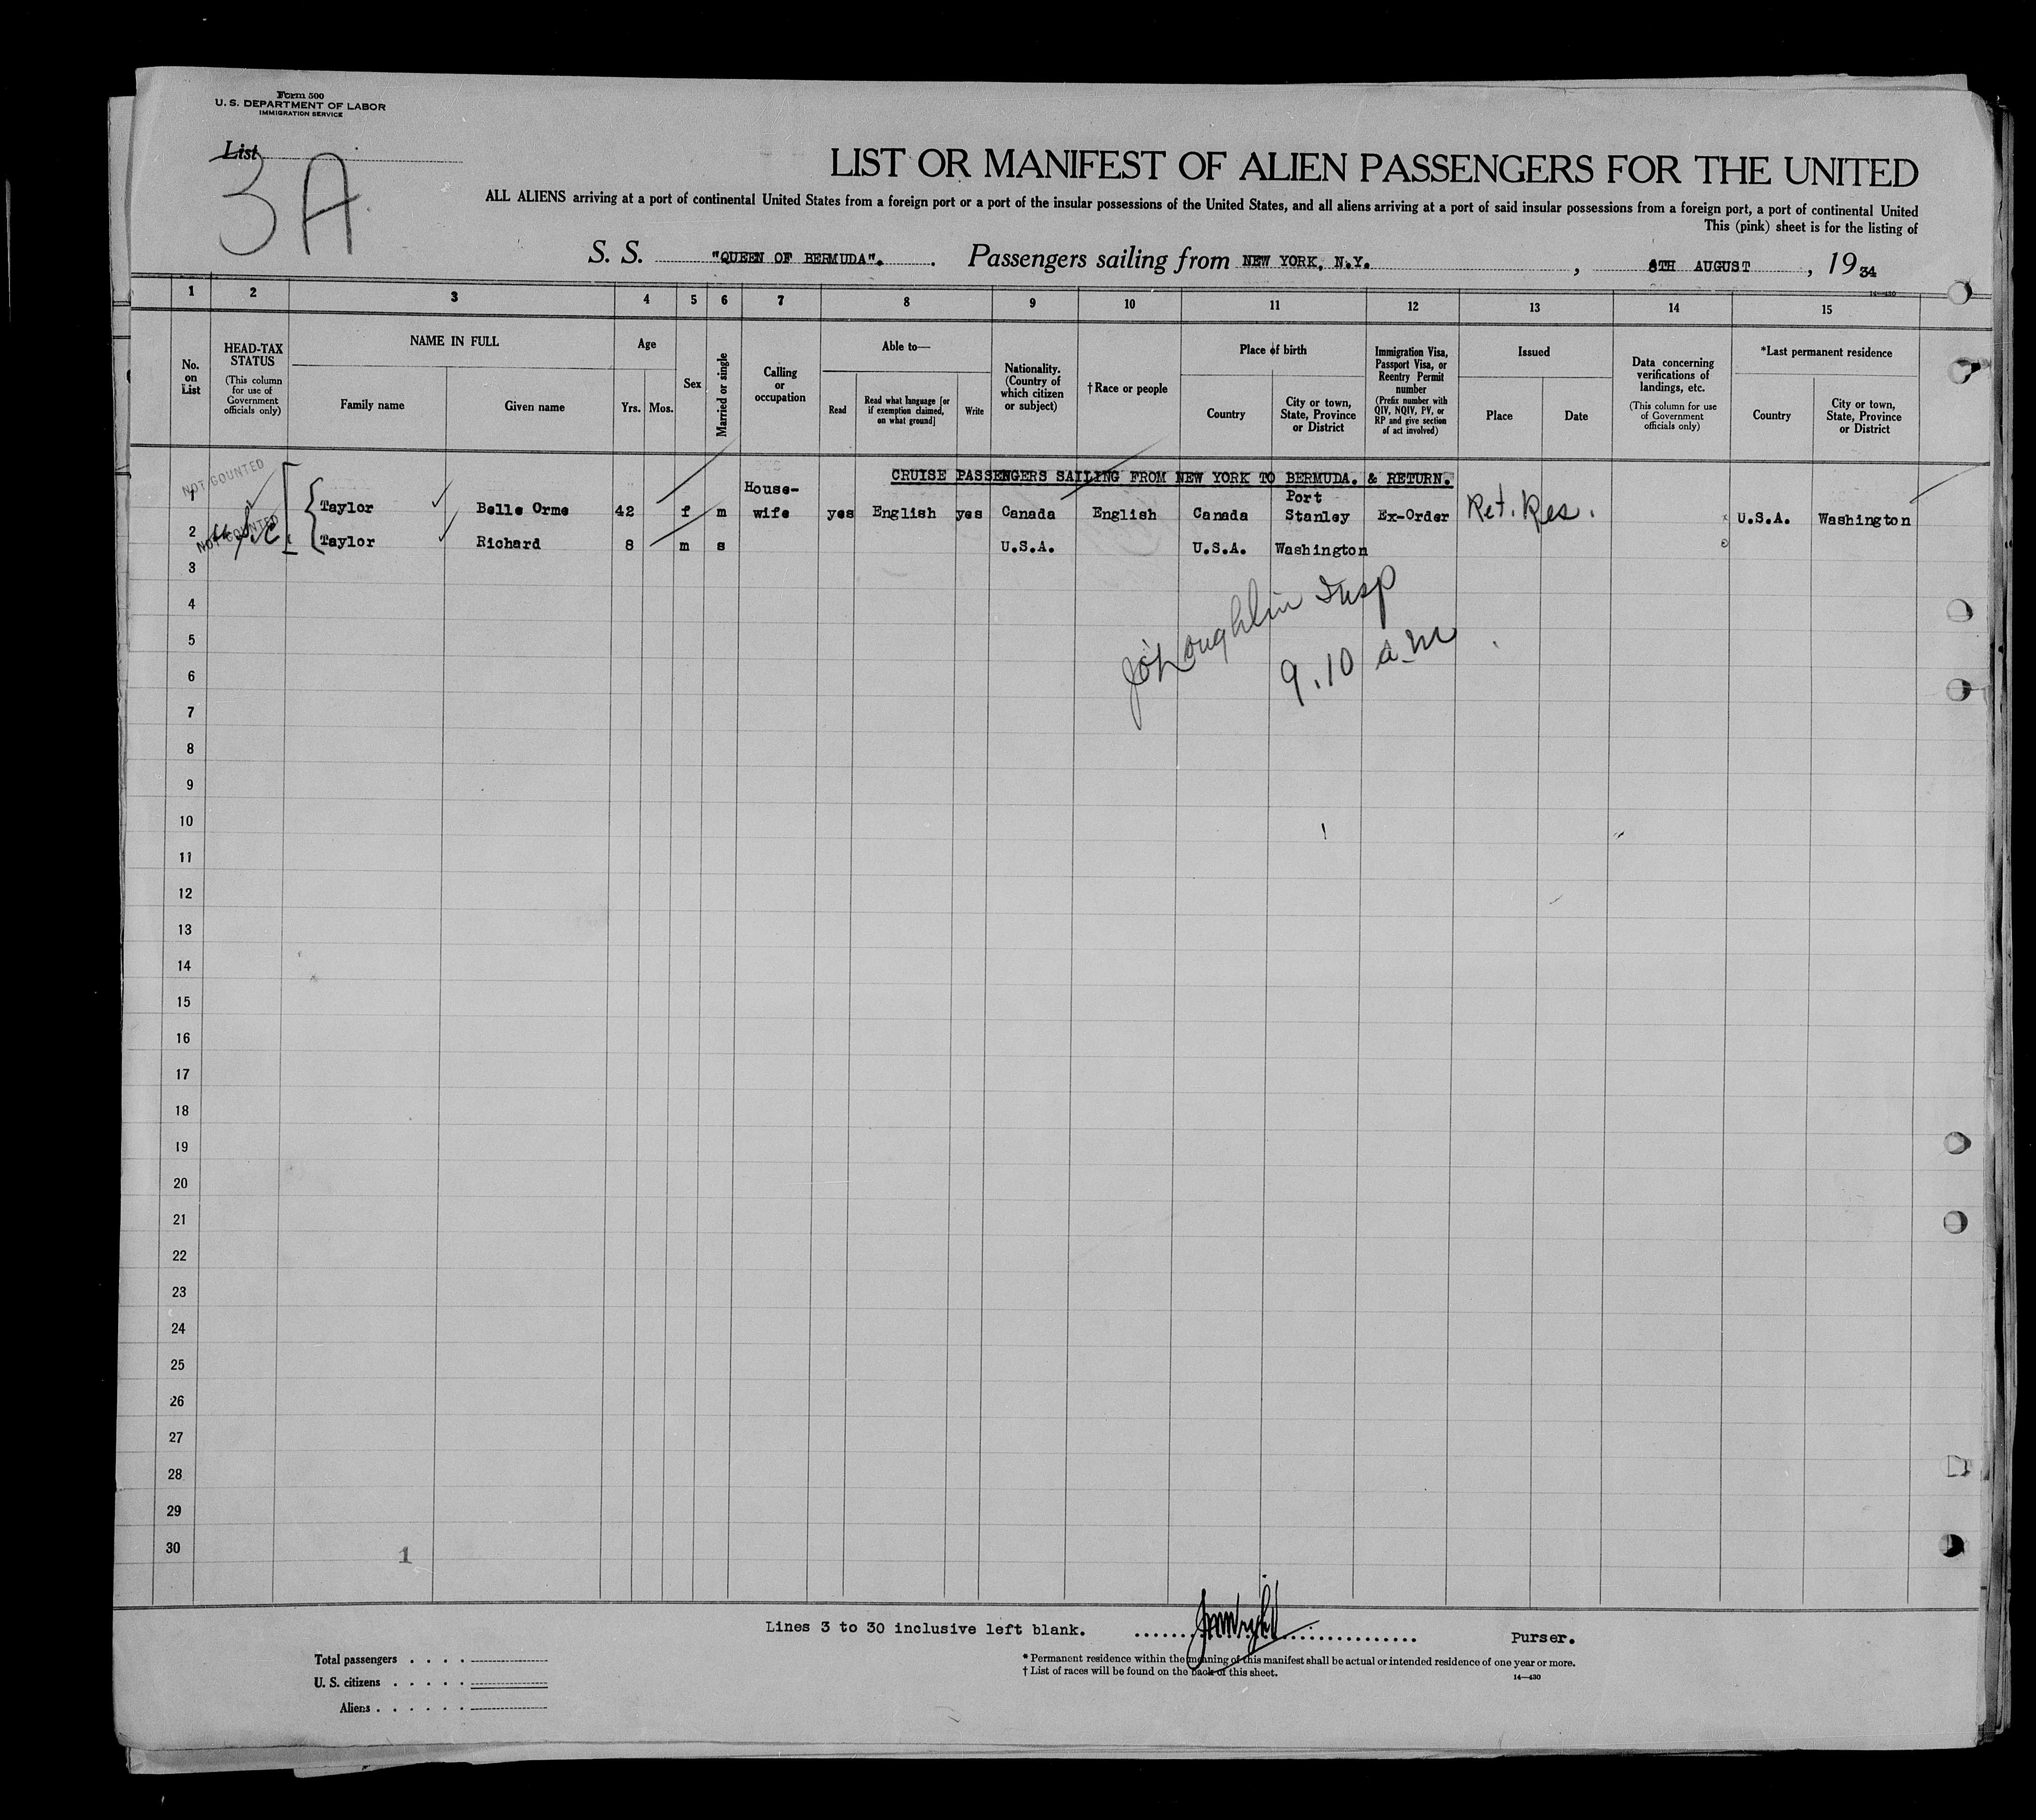 Form 500
U. S. DEPARTMENT OF LABOR
IMMIGRATION SERVICE
List
3A
LIST OR MANIFEST OF ALIEN PASSENGERS FOR THE UNITED
ALL ALIENS arriving at a port of continental United States from a foreign port or a port of the insular possessions of the United States, and all aliens arriving at a port of said insular possessions from a foreign port, a port of continental United
This (pink) sheet is for the listing of
S. S. "QUEEN OF BERMUDA". Passengers sailing from NEW YORK, N.Y. , 8TH AUGUST , 19 34
14—430
1 2 3 4 5 6 7 8 9 10 11 12 13 14 15
No. on List
HEAD-TAX STATUS
(This column for use of Government officials only)
NAME IN FULL
Family name
Given name
Age
Yrs. Mos.
Sex
Married or single
Calling or occupation
Able to—
Read
Read what language [or if exemption claimed, on what ground]
Write
Nationality. (Country of which citizen or subject)
† Race or people
Place of birth
Country
City or town, State, Province or District
Immigration Visa, Passport Visa, or Reentry Permit number
(Prefix number with QIV, NQIV, PV, or RP and give section of act involved)
Issued
Place
Date
Data concerning verifications of landings, etc.
(This column for use of Government officials only)
*Last permanent residence
Country
City or town, State, Province or District
CRUISE PASSENGERS SAILING FROM NEW YORK TO BERMUDA. & RETURN.
NOT COUNTED
1 Taylor Belle Orme 42 f m House-wife yes English yes Canada English Canada Port Stanley Ex-Order Ret. Res. U.S.A. Washington
NOT COUNTED
2 Taylor Richard 8 m s U.S.A. U.S.A. Washington
3
4
JO'Loughlin Insp
5
9.10 a.m
6
7
8
9
10
11
12
13
14
15
16
17
18
19
20
21
22
23
24
25
26
27
28
29
30
1
Lines 3 to 30 inclusive left blank. Purser.
Total passengers
U. S. citizens
Aliens
* Permanent residence within the meaning of this manifest shall be actual or intended residence of one year or more.
† List of races will be found on the back of this sheet.
14—430